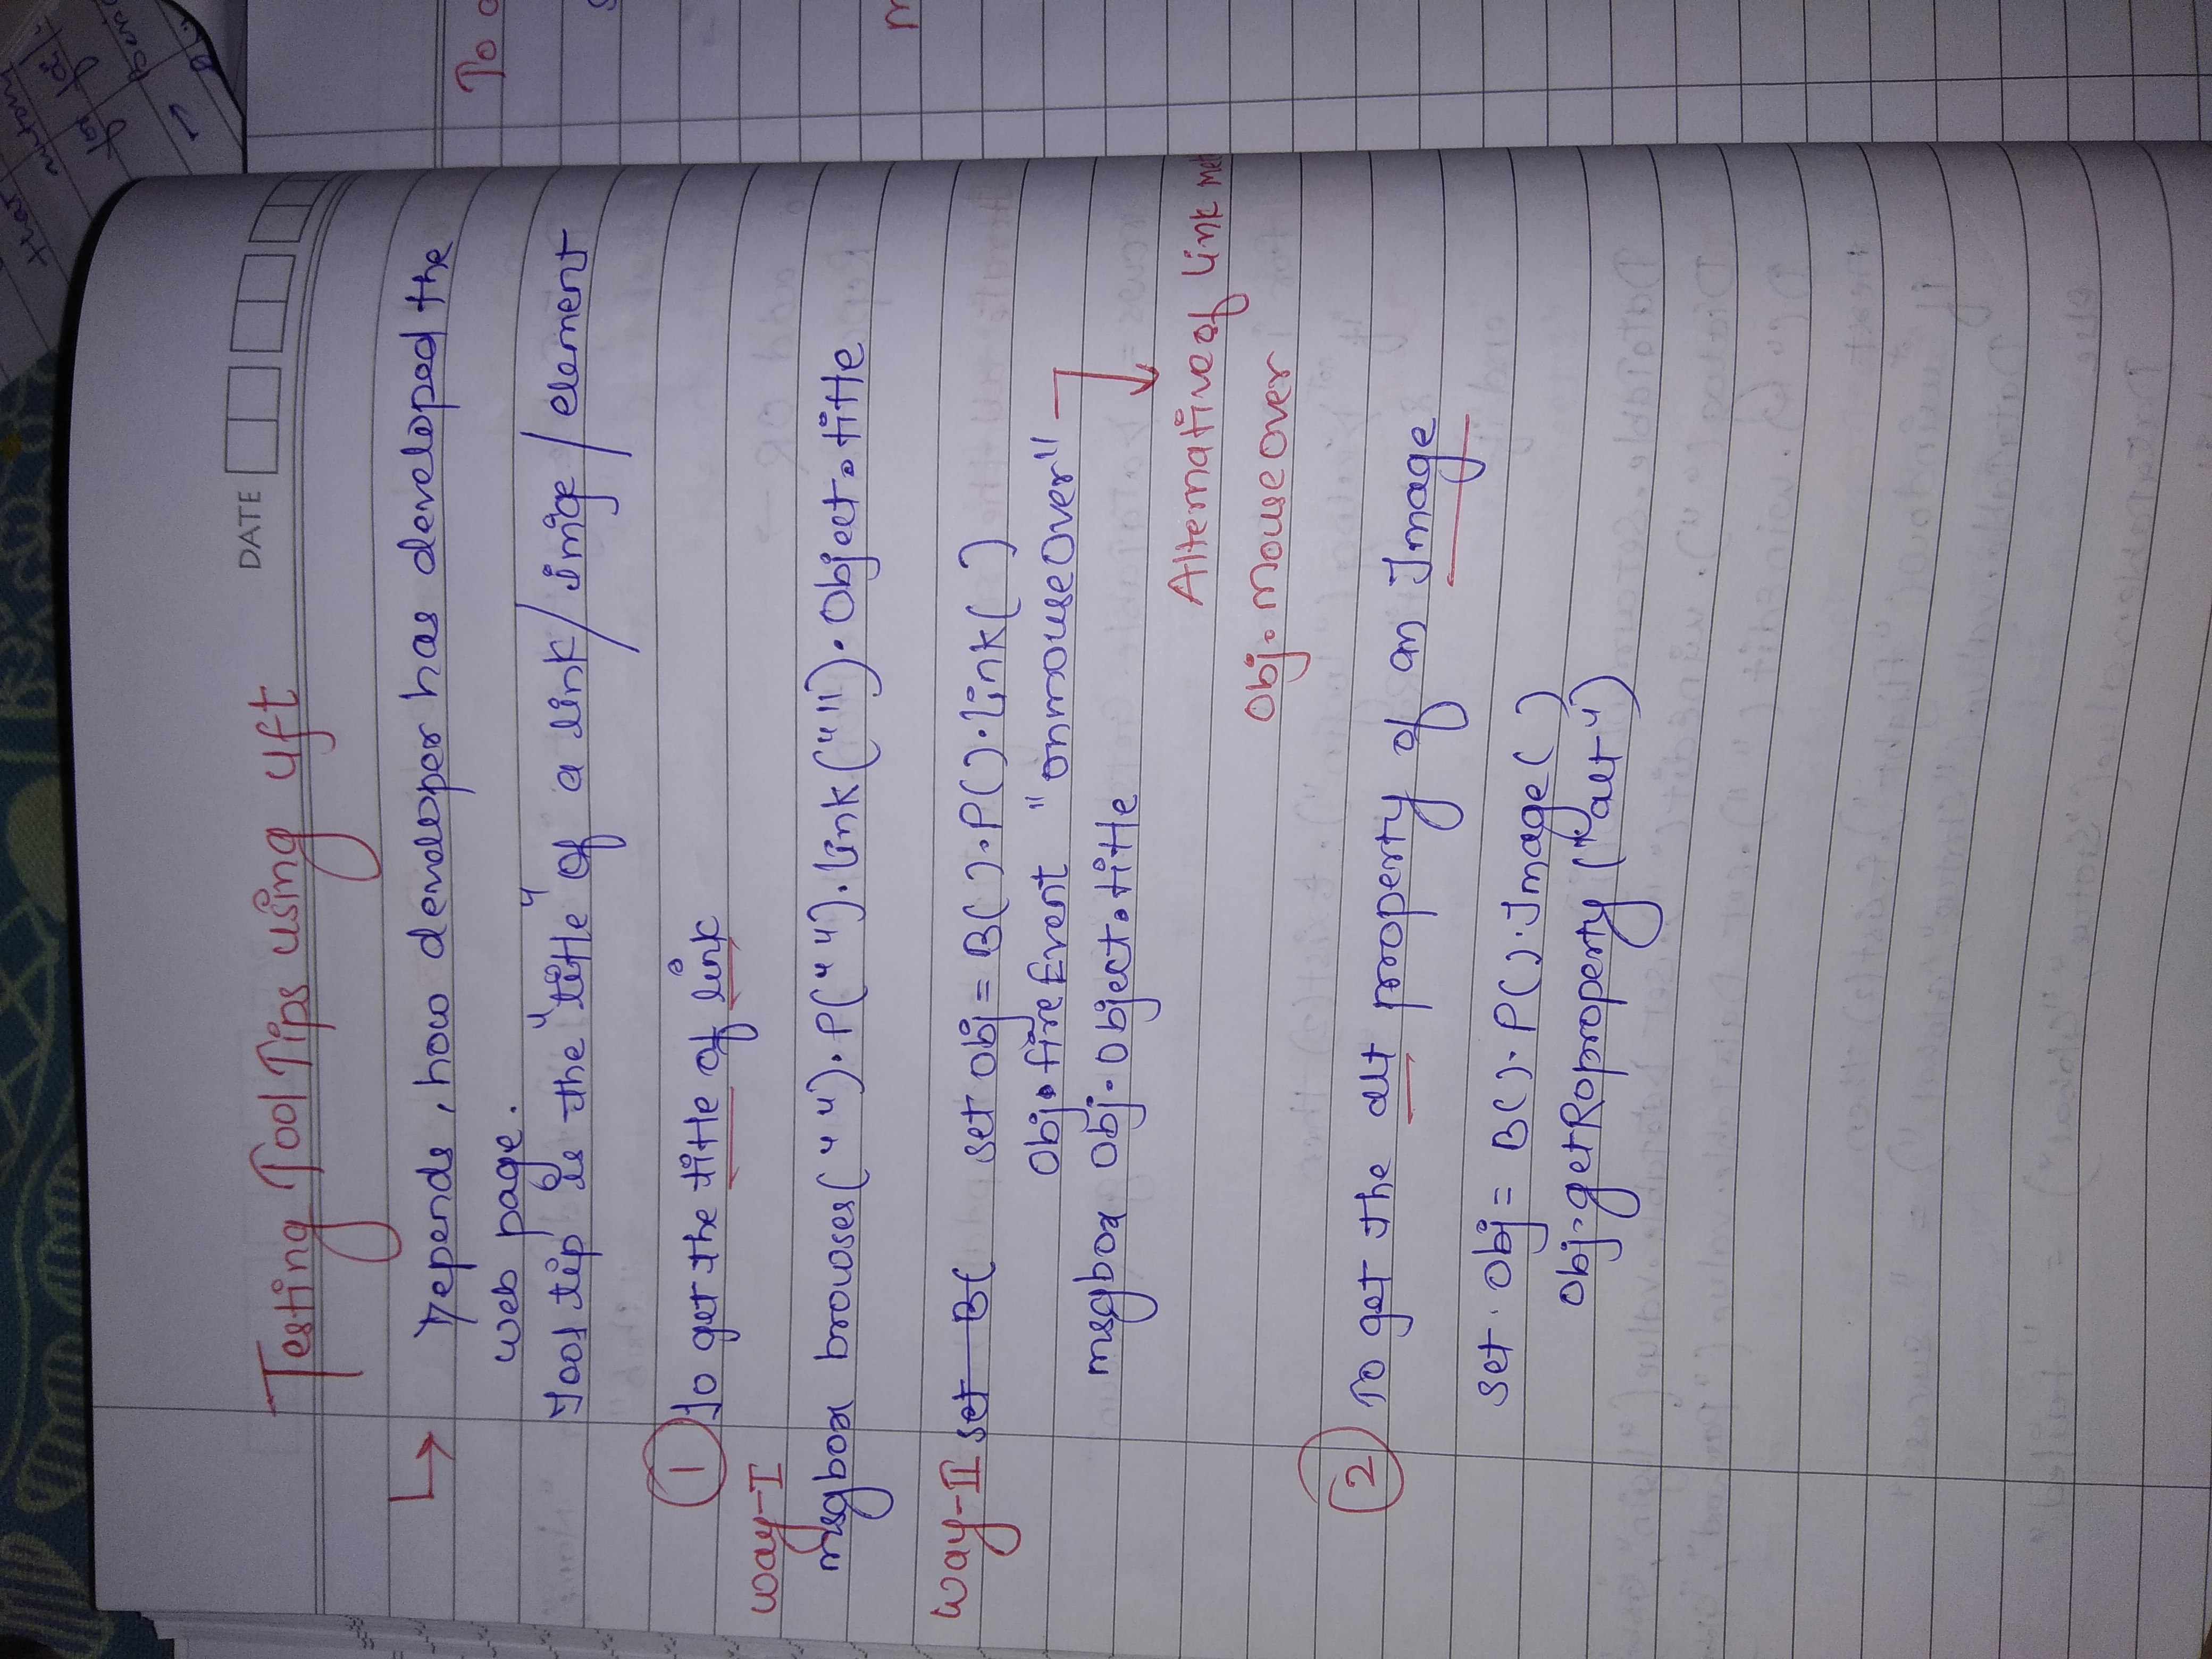 DATE
Testing Tool Tips using uft
↳ Depends, how developer has developed the
web page.
Tool tip is the "title" of a link/image/element
① To get the title of link
way-I
msgbox browses(" ").P(" ").link(" ").Object.title
way-II set B( set obj = B().P().Link( )
Obj.fireEvent "onmouseOver"
msgbox obj.object.title
Alternative of link
Obj.mouseOver
② To get the alt property of an Image
set.obj = B().P().Image( )
obj.getROproperty ("alt")
To